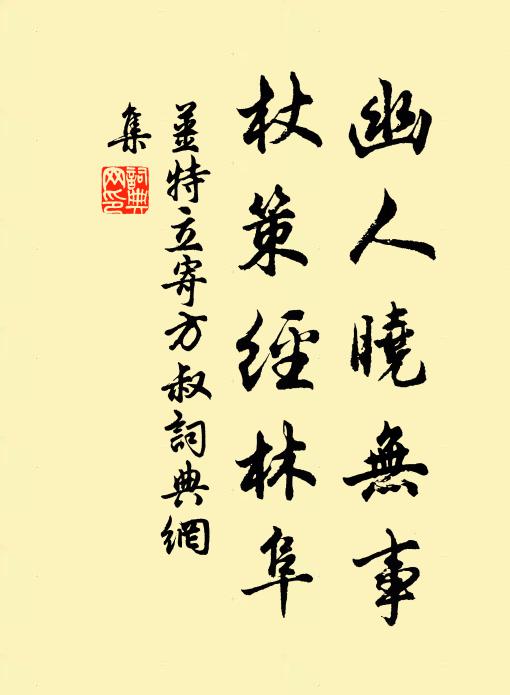 幽人曉無事
杖策經林阜
薑特立寄方叔詞典網
集
詞典
网印